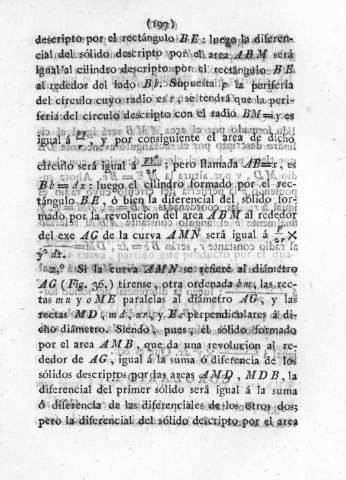 (197)
descripto por el rectángulo BE: luego la diferen-
cial del sólido descripto por el area ABM será
igual al cilindro descripto por el rectángulo BE
al rededor del lado Bb. Supuesta p la periferia
del círculo cuyo radio es r, se tendrá que la peri-
feria del círculo descripto con el radio BM=y es
igual á py/r, y por consiguiente el area de dicho
círculo será igual á py²/2r; pero llamada AB=x, es
Bb=dx: luego el cilindro formado por el rec-
tángulo BE, ó bien la diferencial del sólido for-
mado por la revolucion del area ABM al rededor
del exe AG de la curva AMN será igual á p/2r ×
y² dx.
2.º Si la curva AMN se refiere al diámetro
AG (Fig. 36.) tirense, otra ordenada bm, las rec-
tas mn y oME paralelas al diámetro AG, y las
rectas MD, md, nr, y Ee perpendiculares á di-
cho diámetro. Siendo, pues, el sólido formado
por el area AMB, que da una revolucion al re-
dedor de AG, igual á la suma ó diferencia de los
sólidos descriptos por las areas AMD, MDB, la
diferencial del primer sólido será igual á la suma
ó diferencia de las diferenciales de los otros dos;
pero la diferencial del sólido descripto por el area